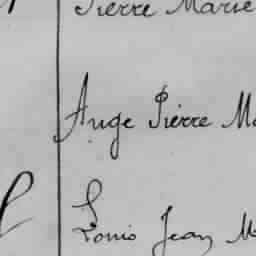 Pierre Marie
Ange Pierre Ma
Louis Jean M